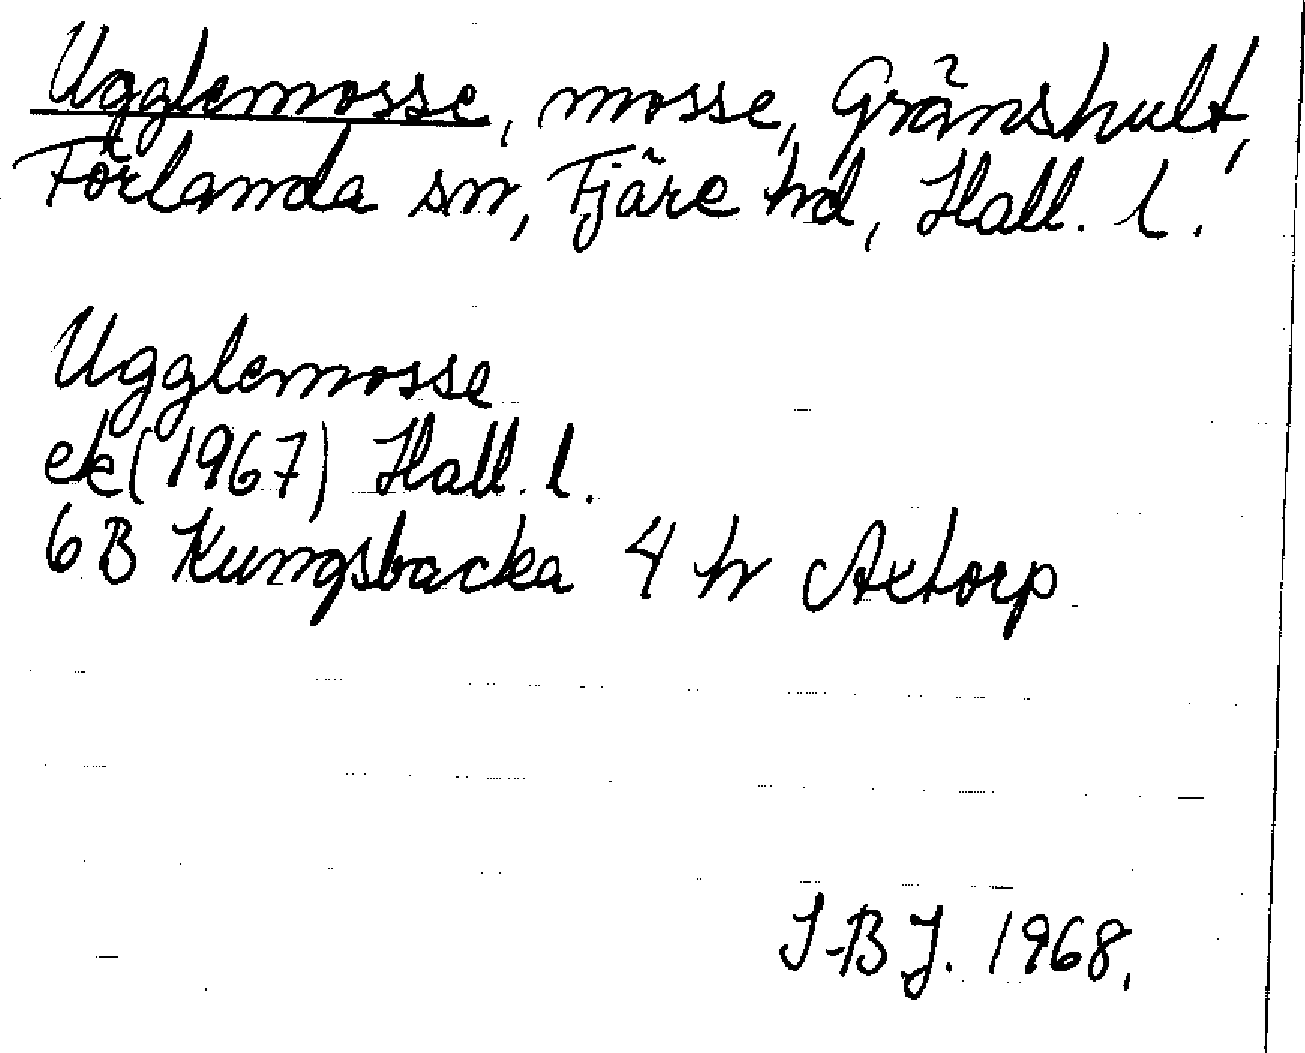 Ugglemosse, mosse, Gränshult,
Förlanda sn, Fjäre hd, Hall. l.
Ugglemosse
ek (1967) Hall. l.
6 B Kungsbacka 4 h Axtorp
I-B J. 1968.